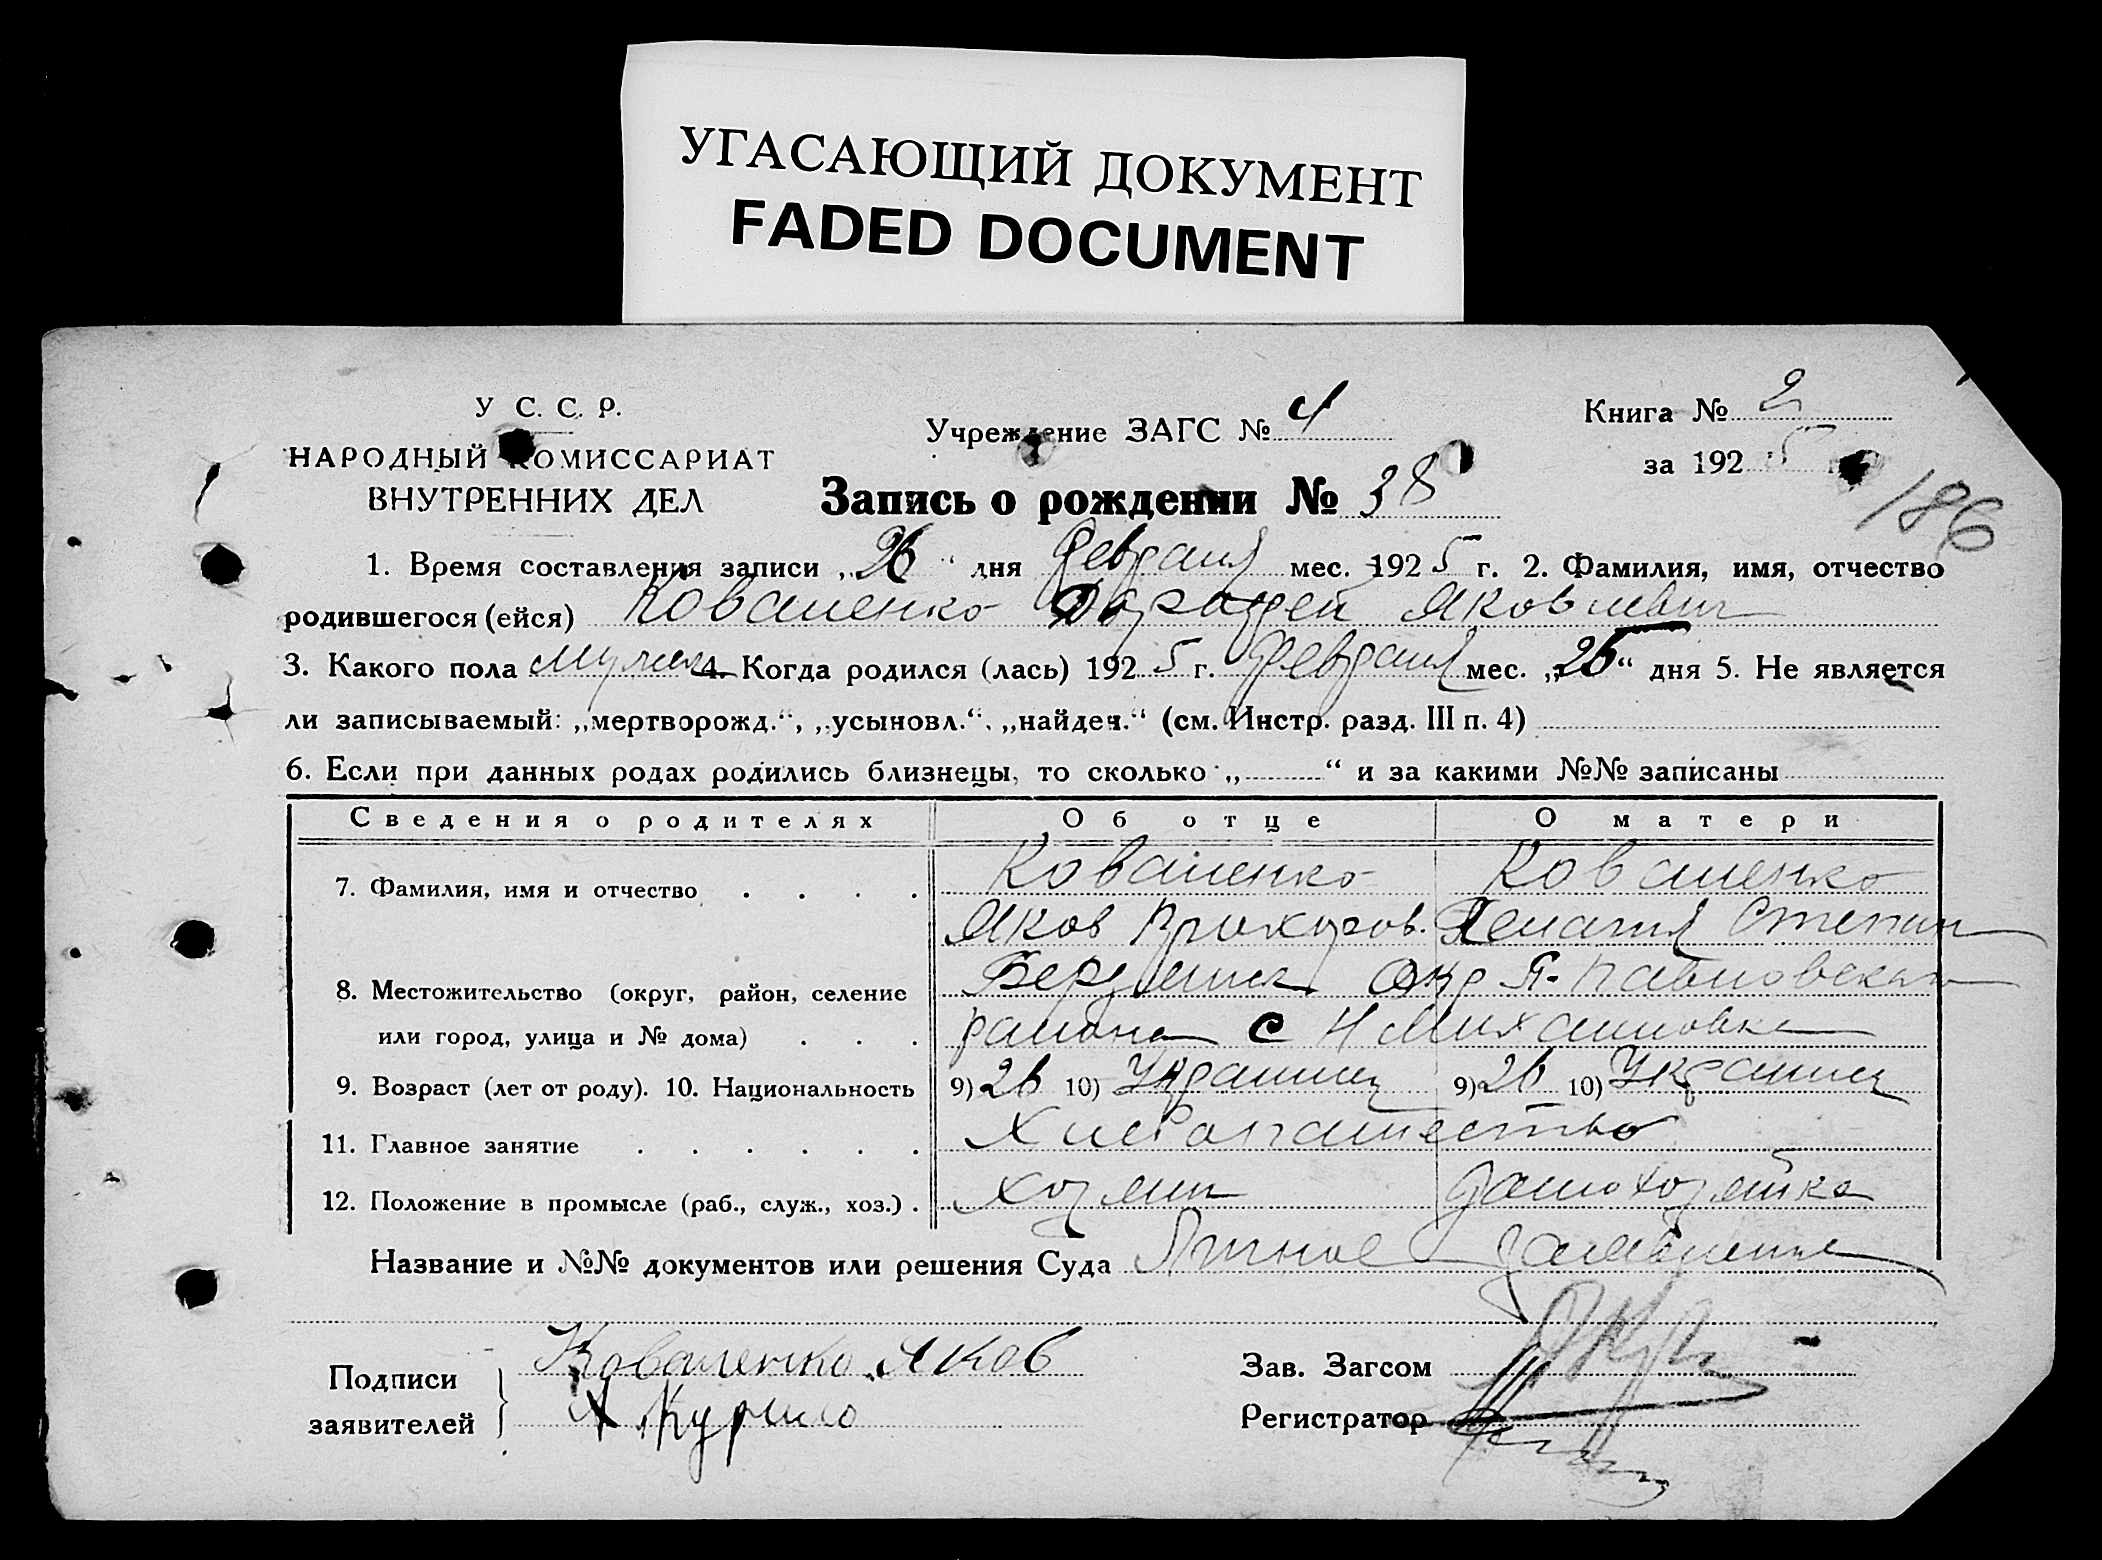 УГАСАЮЩИЙ ДОКУМЕНТ
FADED DOCUMENT
У С. С. Р.
НАРОДНЫЙ КОМИССАРИАТ
ВНУТРЕННИХ ДЕЛ
Учреждение ЗАГС № 4
Книга № 2
за 192 5
Запись о рождении № 38
186
1. Время составления записи „26“ дня Февраля мес. 1925 г. 2. Фамилия, имя, отчество
родившегося (ейся) Коваленко Яковлевич
3. Какого пола мужск 4. Когда родился (лась) 1925 г. Февраля мес. „25“ дня 5. Не является
ли записываемый: „мертворожд.“, „усыновл.“, „найден.“ (см. Инстр. разд. III п. 4)
6. Если при данных родах родились близнецы, то сколько „ “ и за какими №№ записаны
Сведения о родителях Об отце О матери
7. Фамилия, имя и отчество . . . . Коваленко Коваленко
Яков Прохоров. Пелагия Степан
8. Местожительство (округ, район, селение Бердянск Окр П-Павловская
или город, улица и № дома) . . . района с Н Михайловка
9. Возраст (лет от роду). 10. Национальность 9) 26 10) Украинец 9) 26 10) Украинец
11. Главное занятие . . . . . . Хлебопашество
12. Положение в промысле (раб., служ., хоз.) . хозяин домохозяйка
Название и №№ документов или решения Суда заявление
Подписи Коваленко Яков
заявителей Курило
Зав. Загсом
Регистратор